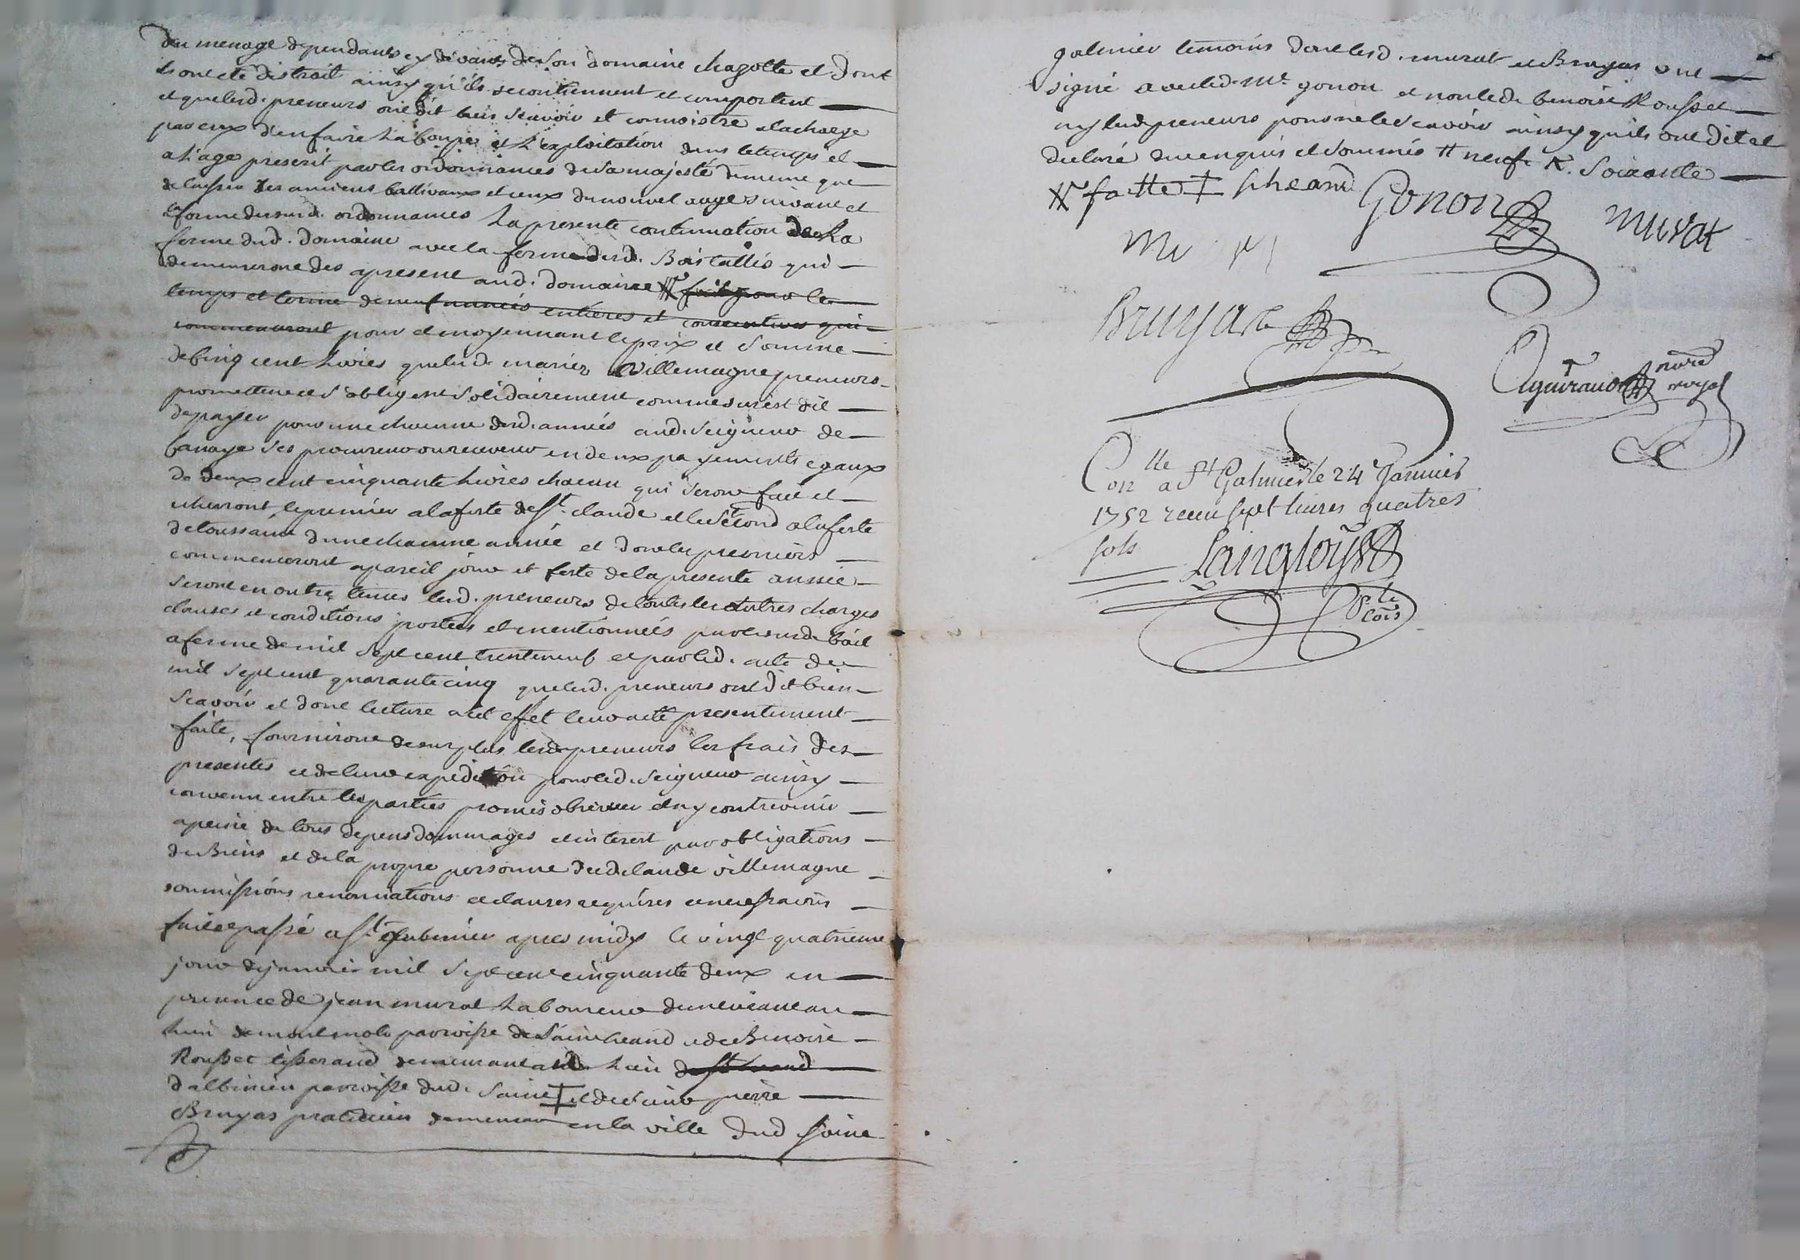 du menage dependants cy devant de son domaine chagotte et dont
ils ont ete distrait ainsy qu'ils se contiennent et comportent
et que lesd. preneurs ont dit bien scavoir et connoistre a la charge
par eux d'en faire la coupe et l'exploitation dans le temps et
a l'age prescrit par les ordonnances de sa majesté de meme que
de laisser les anciens ballivaux et ceux du nouvel auge suivant et
forme desusd. ordonnances la presente continuation de la
ferme dud. domaine avec la ferme desd. Bois tallis qui
demeureront des apresent aud. domaine fait pour le
temps et terme de neuf années entieres et consecutives qui
commenceront pour et moyennant le prix et somme
de cinq cent livres que lesd. mariez Villemagne preneurs
promettent et s'obligent solidairement comme dessus est dit
de payer pour une chacune desd. années aud. Seigneur de
ses procureur ou receveur en deux payements egaux
de deux cent cinquante livres chacun qui seront fait et
echerront, le premier a la feste de St. claude et le second a la feste
de toussaint d'une chacune année et dont les premiers
commenceront a pareil jour et feste de la presente année
seront en outre tenues lesd. preneurs de toutes les autres charges
clauses et conditions portées et mentionnées par led. bail
a ferme de mil sept cent trente neuf et par led. acte de
mil sept cent quarante cinq que lesd. preneurs ont dit bien
scavoir et dont lecture a cet effet leur a eté presentement
faite, fourniront de surplus lesd. preneurs les frais des
presentes et de leur expedition pour led. Seigneur ainsy
convenu entre les parties promis observer et n'y contrevenir
a peine de tous depens dommages et interest par obligations
de Biens et de la propre personne dud. claude villemagne
soumissions renonciations et clauses requises
fait et passé a St. galmier apres midy le vingt quatrieme
jour de janvier mil sept cent cinquante deux en
presence de jean murat laboureur demeurant au
lieu de paroisse de Saint heand et de Benoist
Rousset tisserand demeurant au lieu de St heand
d'albinieu paroisse dud. Saint et de sieur pierre
Bruyas praticien demeurant en la ville dud Saint
galmier temoins dont lesd. murat et Bruyas ont
signé avec led. Me. gonon et non led. benoist Rousset
ny lesd preneurs pour ne le scavoir ainsy qu'ils ont dit et
declaré de ce enquis et sommés # neuf K. Soixante
faitte ‡ st heand Gonon murat
Bruyas
notre
royal
Conlle a St Galmier le 24e Janvier
1752 receu sept livres quatres
sols Langloys